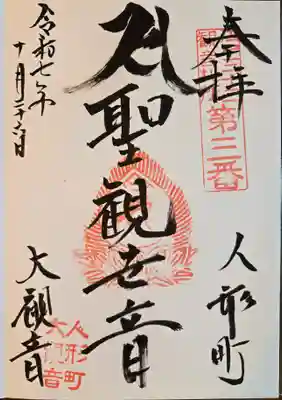 奉拝
第三番
人形町
聖観世音
令和七年
十月二十六日
大観音
人形町
大観音